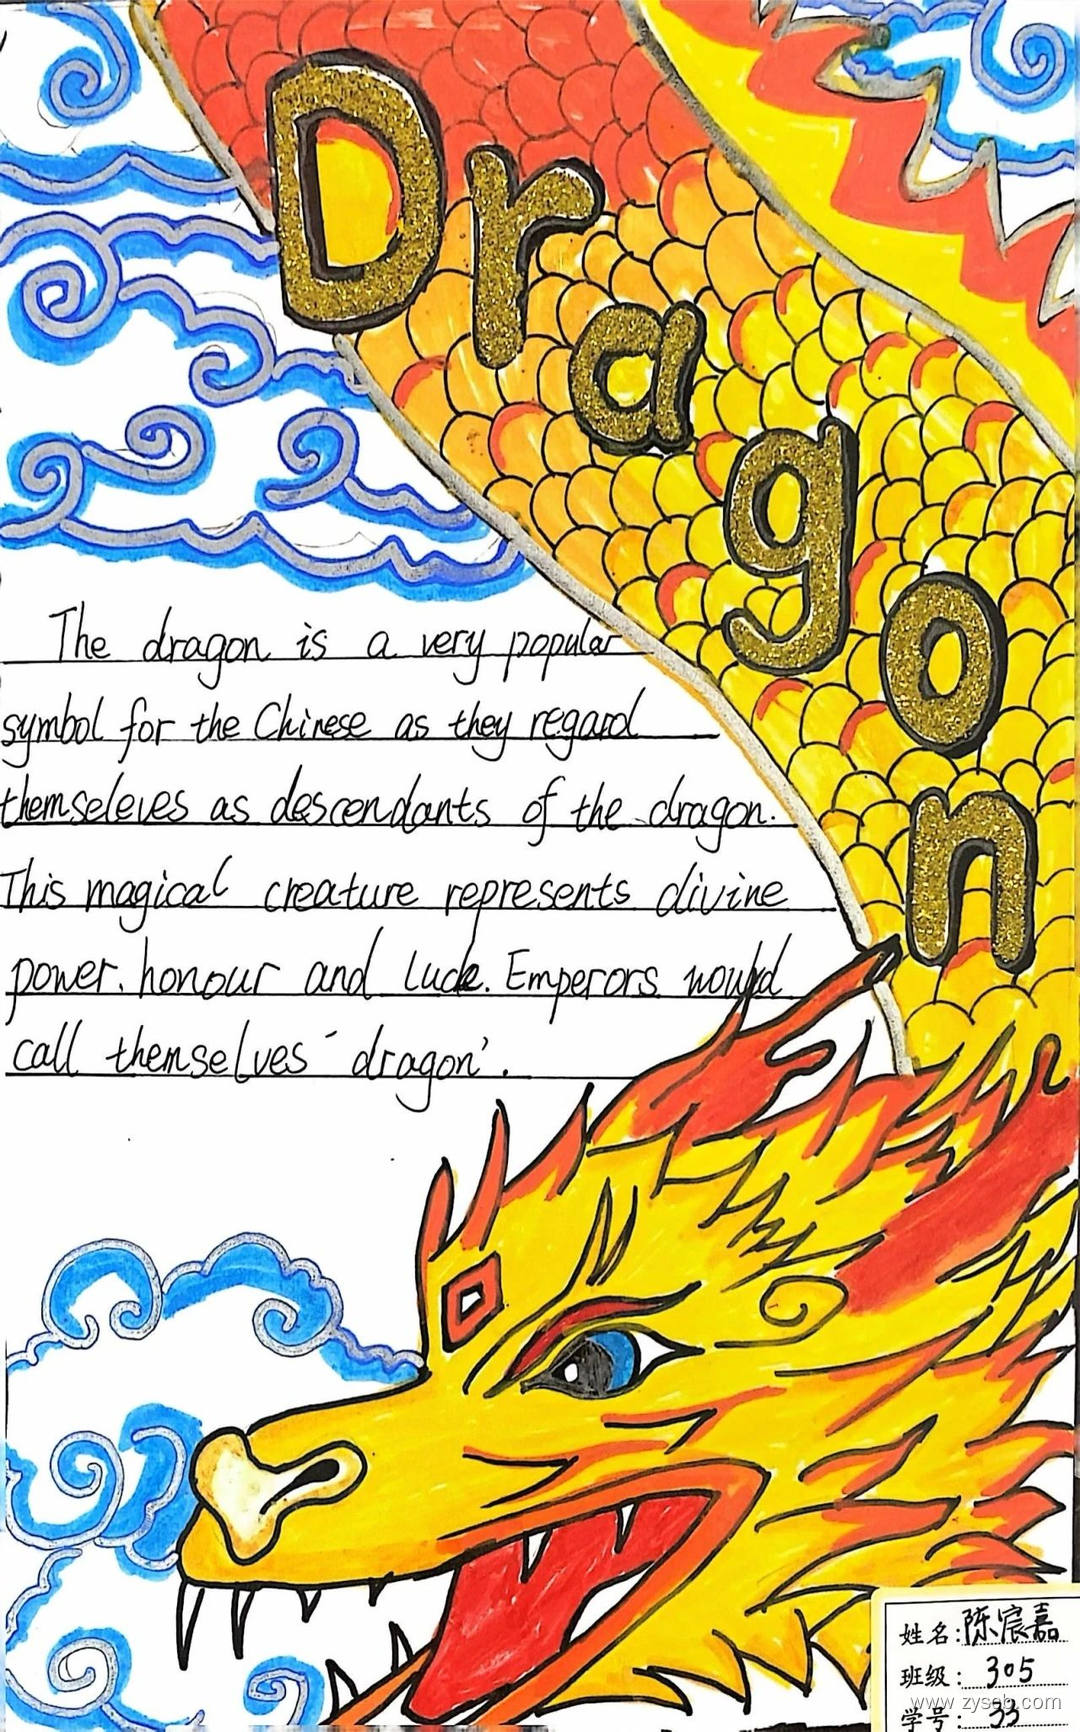 Dragon
The dragon is a very popular
symbol for the Chinese as they regard
themseleves as descendants of the dragon.
This magical creature represents divine
power, honour and luck. Emperors would
call themselves 'dragon'.
姓名:陈宸嘉
班级:305
学号:33
www.zyscb.com